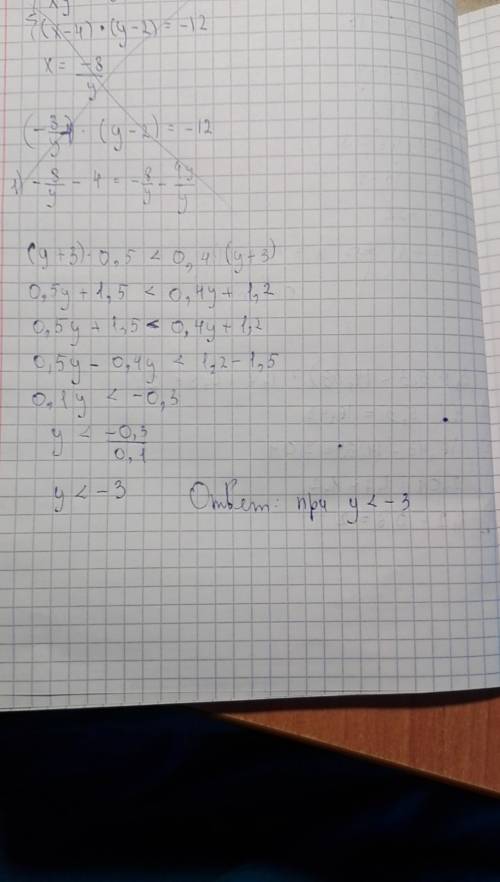 (x-4)·(y-2)=-12
x = -8/y
(-8/y)·(y-2)=-12
1) -8/y - 4 = -8/y - 4y/y
(y+3)·0,5 < 0,4 (y+3)
0,5y + 1,5 < 0,4y + 1,2
0,5y + 1,5 < 0,4y + 1,2
0,5y - 0,4y < 1,2 - 1,5
0,1y < -0,3
y < -0,3/0,1
y < -3 Ответ: при y < -3